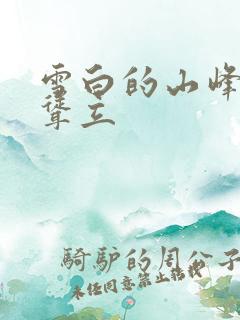 雪白的山峰
聳立
騎驴的周公子
未经同意禁止转载